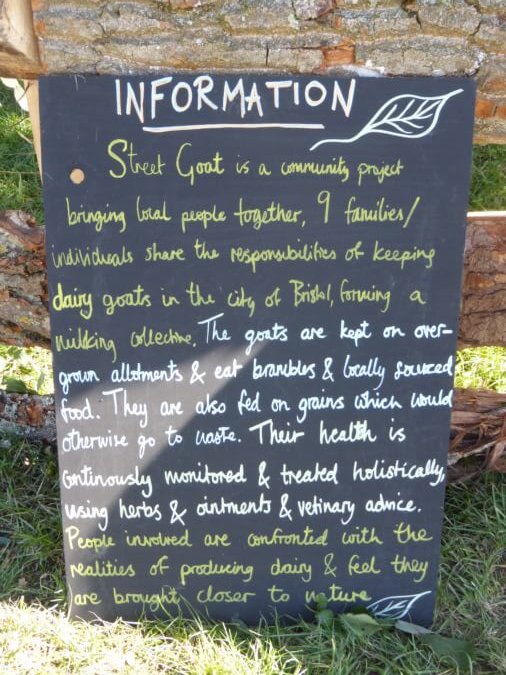 INFORMATION
Street Goat is a community project
bringing local people together, 9 families/
individuals share the responsibilities of keeping
dairy goats in the city of Bristol, forming a
milking collective. The goats are kept on over-
grown allotments & eat brambles & locally sourced
food. They are also fed on grains which would
otherwise go to waste. Their health is
continously monitored & treated holistically,
using herbs & ointments & vetinary advice.
People involved are confronted with the
realities of producing dairy & feel they
are brought closer to nature